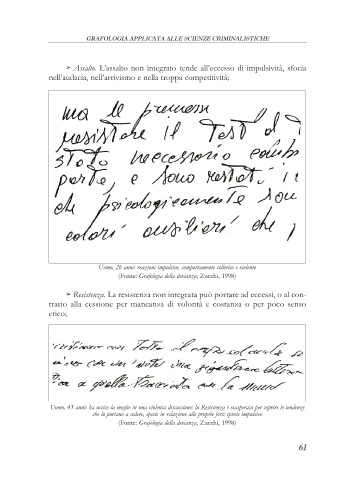 GRAFOLOGIA APPLICATA ALLE SCIENZE CRIMINALISTICHE
➢ Assalto. L'assalto non integrato tende all'eccesso di impulsività, sfocia
nell'audacia, nell'arrivismo e nella troppa competitività;
ma le premesse
resistere il Test di
stato necessario
parte, e sono restati i
che psicologicamente sou
coloro ausiliari che
Uomo, 26 anni: reazioni impulsive, comportamento colerico e violento
(Fonte: Grafologia della devianza, Zucchi, 1998)
➢ Resistenza. La resistenza non integrata può portare ad eccessi, o al con-
trario alla cessione per mancanza di volontà e costanza o per poco senso
etico;
con tutto il
una
a quella con la
Uomo, 45 anni: ha ucciso la moglie in una violenta discussione: la Resistenza è esasperata per coprire le tendenze
che lo portano a cedere, specie in relazione alle proprie forti spinte impulsive
(Fonte: Grafologia della devianza, Zucchi, 1998)
61